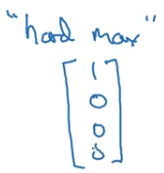 "hard max"
1
0
0
0